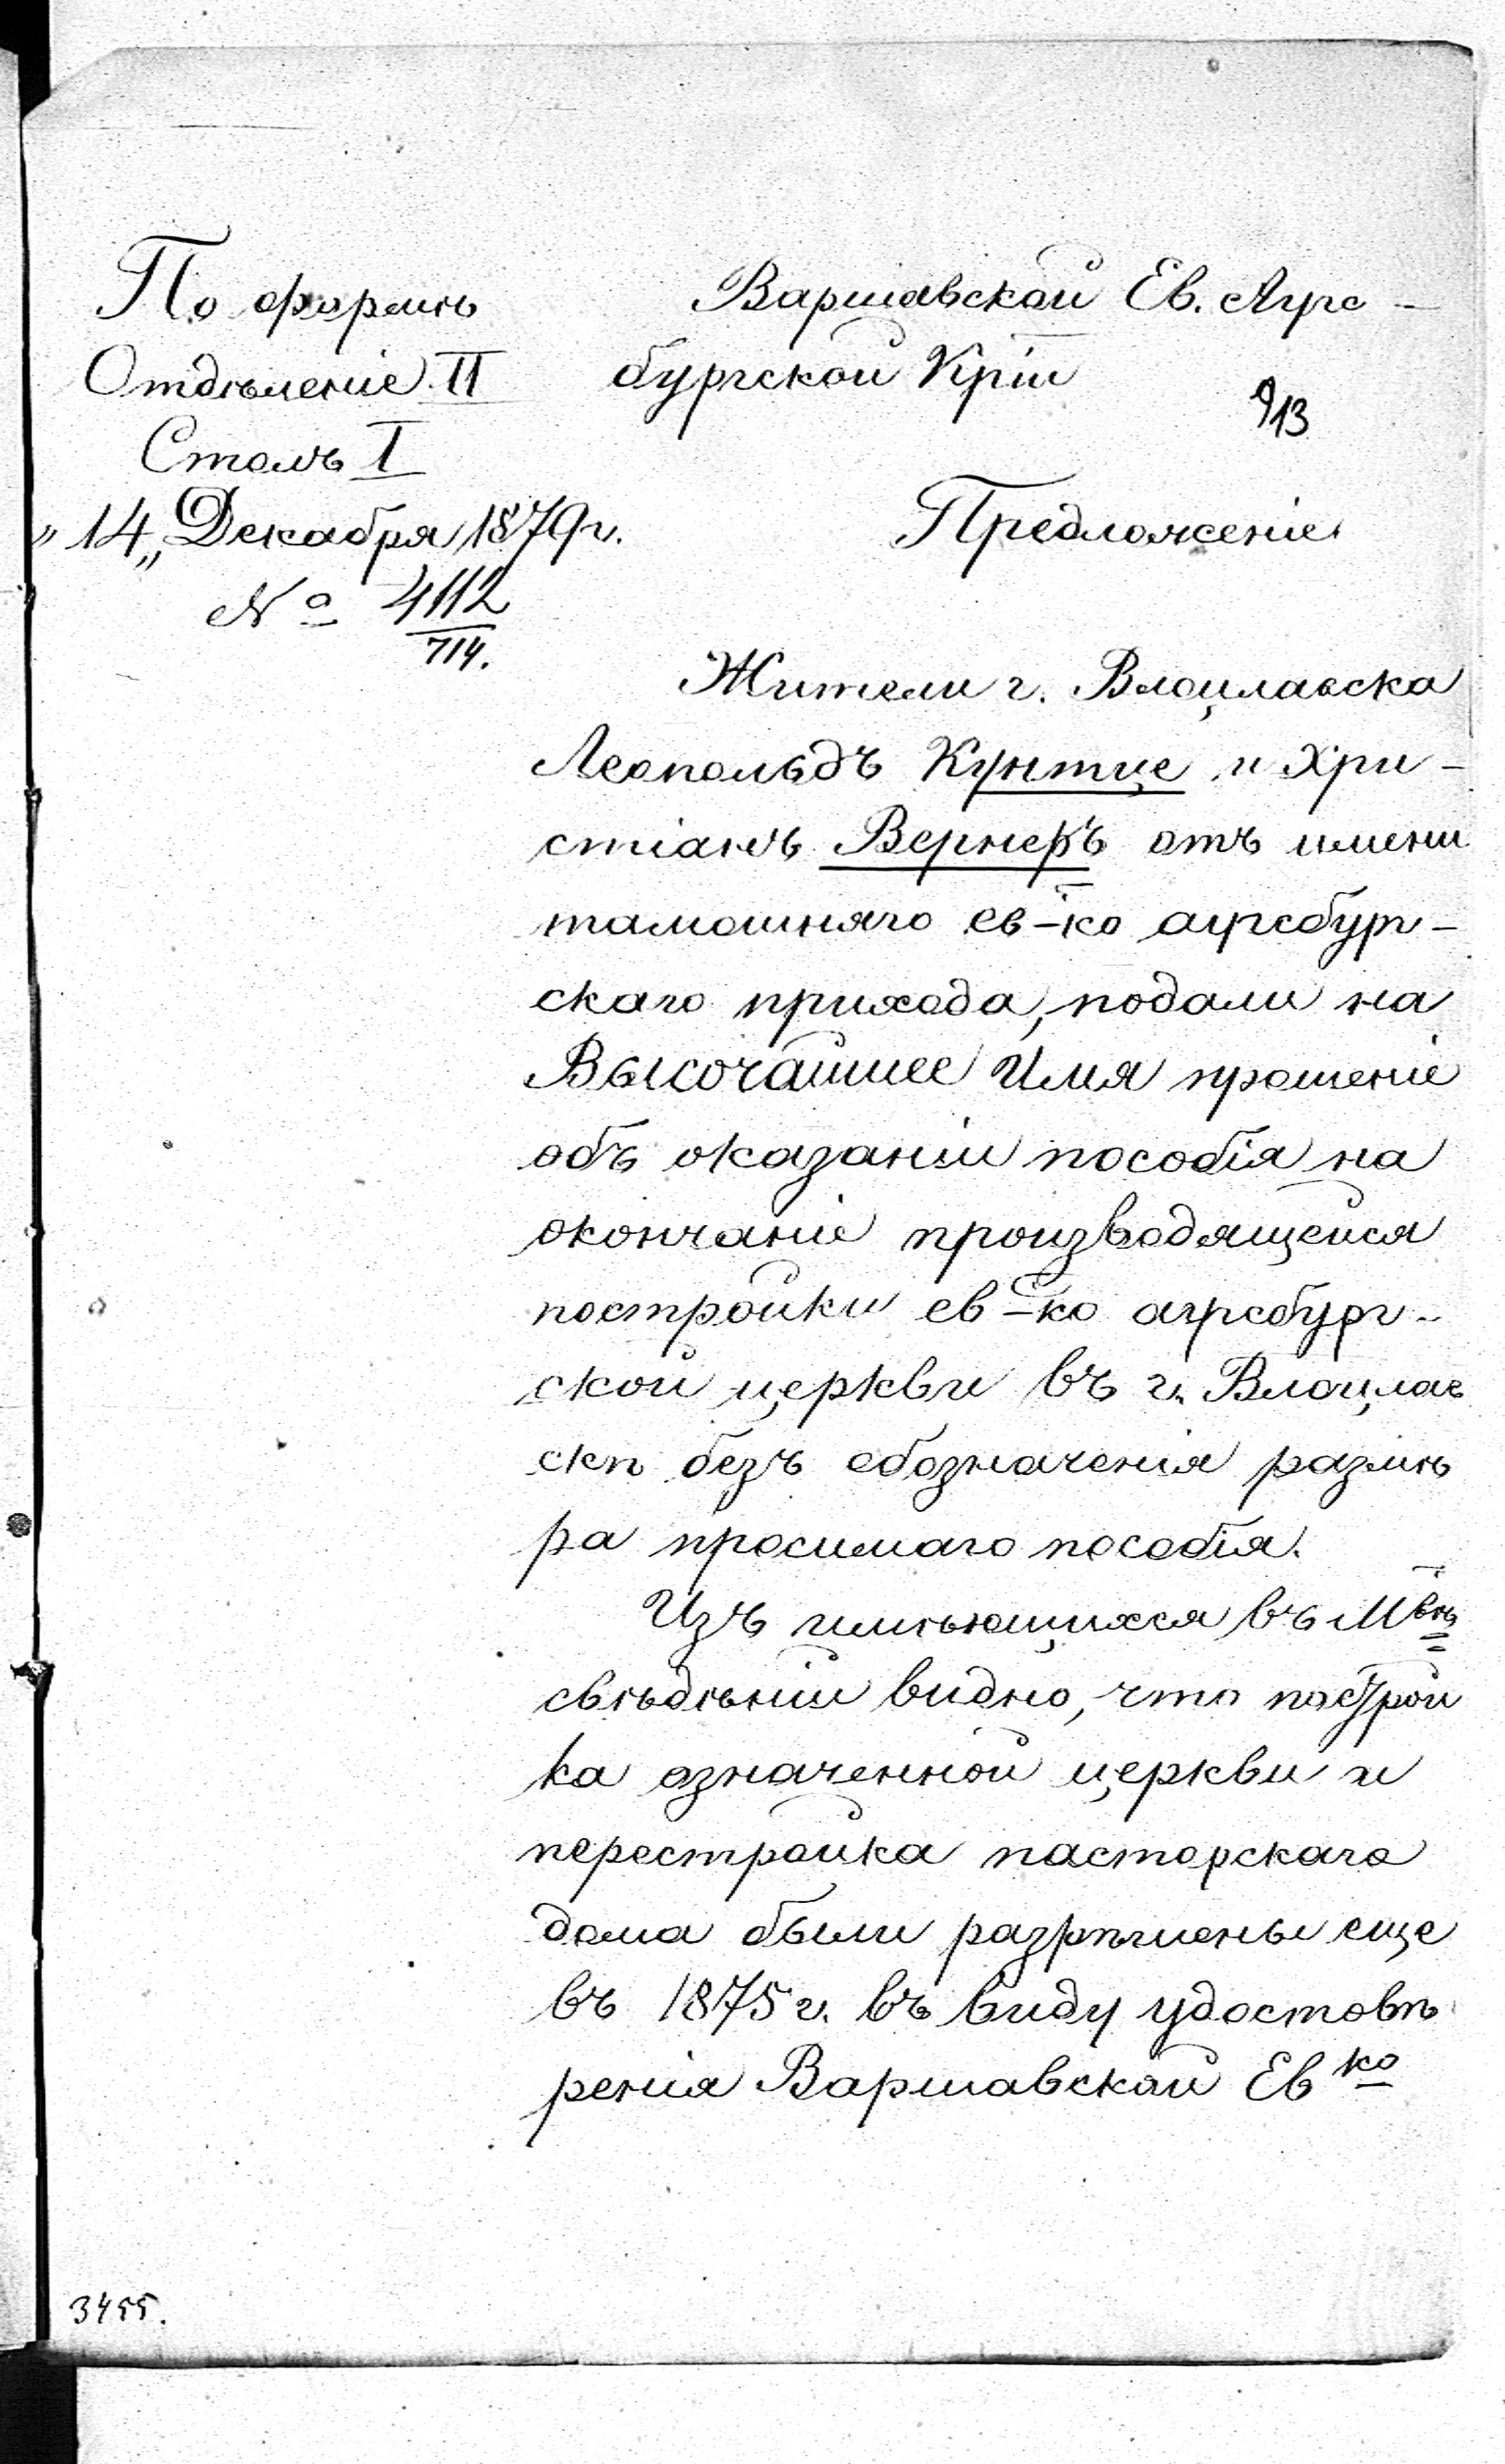 По формѣ
Отдѣленіе II
Столъ I
„14„ Декабря 1879 г.
№ 4112
714.
Варшавской Ев. Аугс-
бургской Кріи
Предложеніе
Жители г. Влоцлавска
Леопольдъ Кунтце и Хри-
стіанъ Вернеръ отъ имени
тамошняго ев-ко аугсбург-
скаго прихода, подали на
Высочайшее Имя прошеніе
объ оказаніи пособія на
окончаніе производящейся
постройки ев-ко аугсбург-
ской церкви въ г. Влоцлав
скѣ безъ обозначенія размѣ
ра просимаго пособія.
Изъ имѣющихся въ Мвѣ
свѣдѣній видно, что построй
ка означенной церкви и
перестройка пасторскаго
дома были разрѣшены еще
въ 1875 г. въ виду удостовѣ
ренія Варшавской Евко
3455.